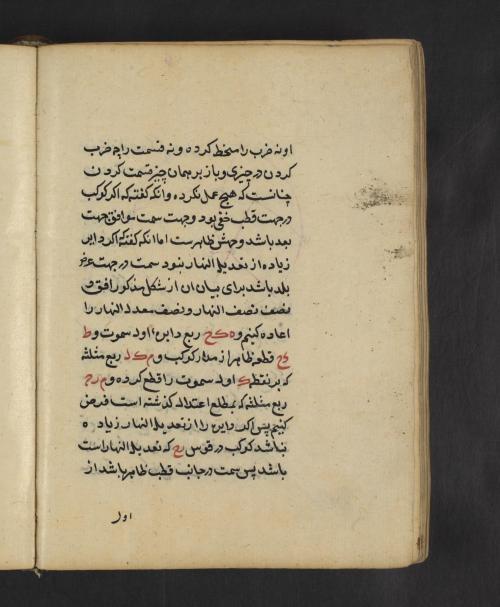 او نه ضرب را منحط کرده و نه قسمت را چه ضرب
کردن در چیزی و باز بر همان چیز قسمت کردن
چنانست که هیچ عمل نکرده و انکه گفته که اگر کوکب
در جهت قطب خفی بود وجهت سمت موافق جهت
بعد باشد وجهش ظاهر است اما انکه گفته که اگر دایر
زیاده از تعدیل النهار بنود سمت در جهت عرض
بلد باشد برای بیان ان از شکل مذکور افق و
نصف نصف النهار و نصف معدل النهار را
اعاده کنیم و ه ک ح ربع دایره اول سموت و ط
ح قطو ظاهر از مدار کوکب و م ک د ربع مثلثه
که بر نقطه ک اول سموت را قطع کرده و م ح
ربع مثلثه که بمطلع اعتدال گذشته است فرض
کنیم پس اگر دایره را از تعدیل النهار زیاده
نباشد کوکب در قوس ح که تعدیل النهار است
باشد پس سمت در جانب قطب ظاهر باشد از
اول